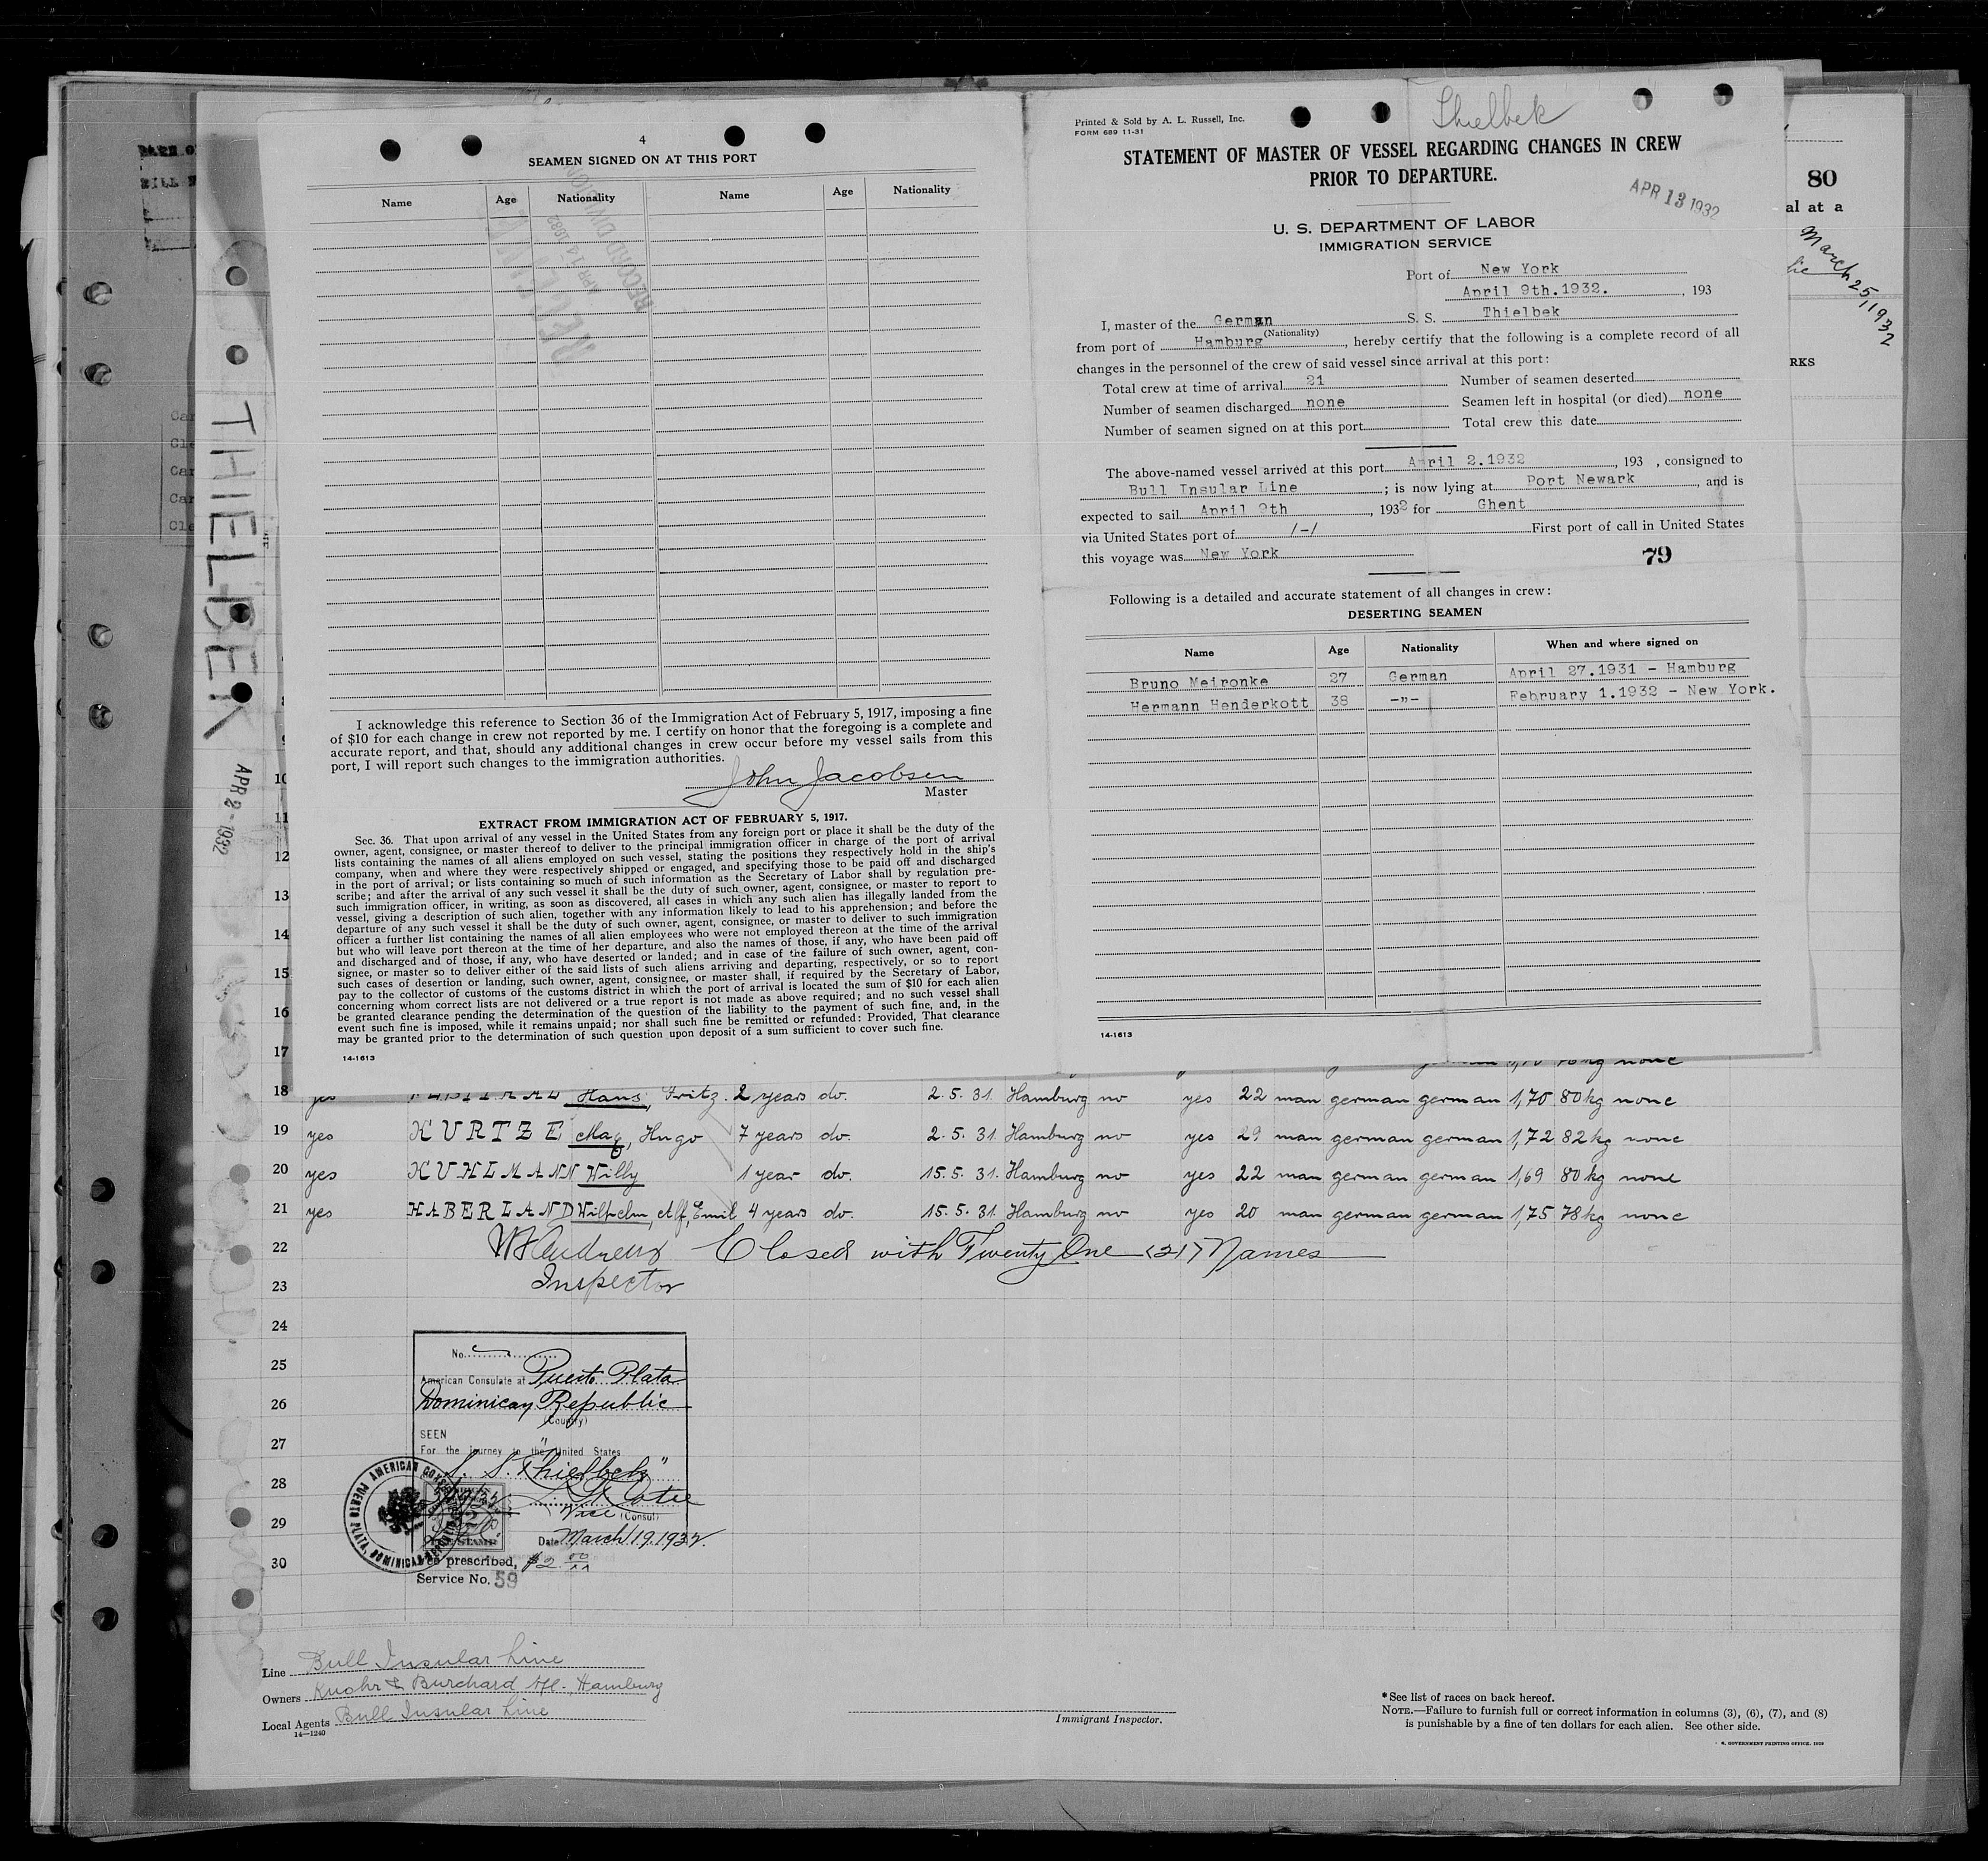 4
SEAMEN SIGNED ON AT THIS PORT
Name Age Nationality Name Age Nationality
RECEIVED
APR 14 1932
RECORD DIVISION
I acknowledge this reference to Section 36 of the Immigration Act of February 5, 1917, imposing a fine
of $10 for each change in crew not reported by me. I certify on honor that the foregoing is a complete and
accurate report, and that, should any additional changes in crew occur before my vessel sails from this
port, I will report such changes to the immigration authorities.
John Jacobsen
Master
EXTRACT FROM IMMIGRATION ACT OF FEBRUARY 5, 1917.
Sec. 36. That upon arrival of any vessel in the United States from any foreign port or place it shall be the duty of the
owner, agent, consignee, or master thereof to deliver to the principal immigration officer in charge of the port of arrival
lists containing the names of all aliens employed on such vessel, stating the positions they respectively hold in the ship's
company, when and where they were respectively shipped or engaged, and specifying those to be paid off and discharged
in the port of arrival; or lists containing so much of such information as the Secretary of Labor shall by regulation pre-
scribe; and after the arrival of any such vessel it shall be the duty of such owner, agent, consignee, or master to report to
such immigration officer, in writing, as soon as discovered, all cases in which any such alien has illegally landed from the
vessel, giving a description of such alien, together with any information likely to lead to his apprehension; and before the
departure of any such vessel it shall be the duty of such owner, agent, consignee, or master to deliver to such immigration
officer a further list containing the names of all alien employees who were not employed thereon at the time of the arrival
but who will leave port thereon at the time of her departure, and also the names of those, if any, who have been paid off
and discharged and of those, if any, who have deserted or landed; and in case of the failure of such owner, agent, con-
signee, or master so to deliver either of the said lists of such aliens arriving and departing, respectively, or so to report
such cases of desertion or landing, such owner, agent, consignee, or master shall, if required by the Secretary of Labor,
pay to the collector of customs of the customs district in which the port of arrival is located the sum of $10 for each alien
concerning whom correct lists are not delivered or a true report is not made as above required; and no such vessel shall
be granted clearance pending the determination of the question of the liability to the payment of such fine, and, in the
event such fine is imposed, while it remains unpaid; nor shall such fine be remitted or refunded: Provided, That clearance
may be granted prior to the determination of such question upon deposit of a sum sufficient to cover such fine.
14-1613
Printed & Sold by A. L. Russell, Inc.
FORM 689 11-31
Thielbek
STATEMENT OF MASTER OF VESSEL REGARDING CHANGES IN CREW
PRIOR TO DEPARTURE.
APR 13 1932
U. S. DEPARTMENT OF LABOR
IMMIGRATION SERVICE
Port of New York
April 9th.1932. , 193
I, master of the German S. S. Thielbek
(Nationality)
from port of Hamburg , hereby certify that the following is a complete record of all
changes in the personnel of the crew of said vessel since arrival at this port:
Total crew at time of arrival 21 Number of seamen deserted
Number of seamen discharged none Seamen left in hospital (or died) none
Number of seamen signed on at this port Total crew this date
The above-named vessel arrived at this port April 2.1932 , 193 , consigned to
Bull Insular Line ; is now lying at Port Newark , and is
expected to sail April 9th , 1932 for Ghent
via United States port of /-/ First port of call in United States
this voyage was New York
79
Following is a detailed and accurate statement of all changes in crew:
DESERTING SEAMEN
Name Age Nationality When and where signed on
Bruno Meironke 27 German April 27.1931 - Hamburg
Hermann Henderkott 38 -"- February 1.1932 - New York.
14-1613
80
al at a
March 25, 1932
RKS
THIELBEK
APR 2 - 1932
10
11
12
13
14
15
16
17 kg none
18 yes Hans, Fritz 2 years do. 2.5.31. Hamburg no yes 22 man german german 1,70 80 kg none
19 yes KURTZE Max, Hugo 7 years do. 2.5.31. Hamburg no yes 29 man german german 1,72 82 kg none
20 yes KUHLMANN Willy 1 year do. 15.5.31. Hamburg no yes 22 man german german 1,69 80 kg none
21 yes HABERLAND Wilhelm, Alf, Emil 4 years do. 15.5.31. Hamburg no yes 20 man german german 1,75 78 kg none
22 Andrews Closed with Twenty One (21) Names
23 Inspector
24
25
26
27
28
29
30
No.
American Consulate at Puerto Plata
Dominican Republic
(Country)
SEEN
For the journey to the United States
S. S. "Thielbek"
Vice (Consul)
Date March 19, 1932.
AMERICAN CONSULATE
PUERTO PLATA, DOMINICAN REPUBLIC
Fee prescribed, $2.00
Service No. 59
Line Bull Insular Line
Owners Knohr & Burchard Nfl. Hamburg
Local Agents Bull Insular Line
14-1240
Immigrant Inspector.
*See list of races on back hereof.
NOTE.—Failure to furnish full or correct information in columns (3), (6), (7), and (8)
is punishable by a fine of ten dollars for each alien. See other side.
GOVERNMENT PRINTING OFFICE: 1929